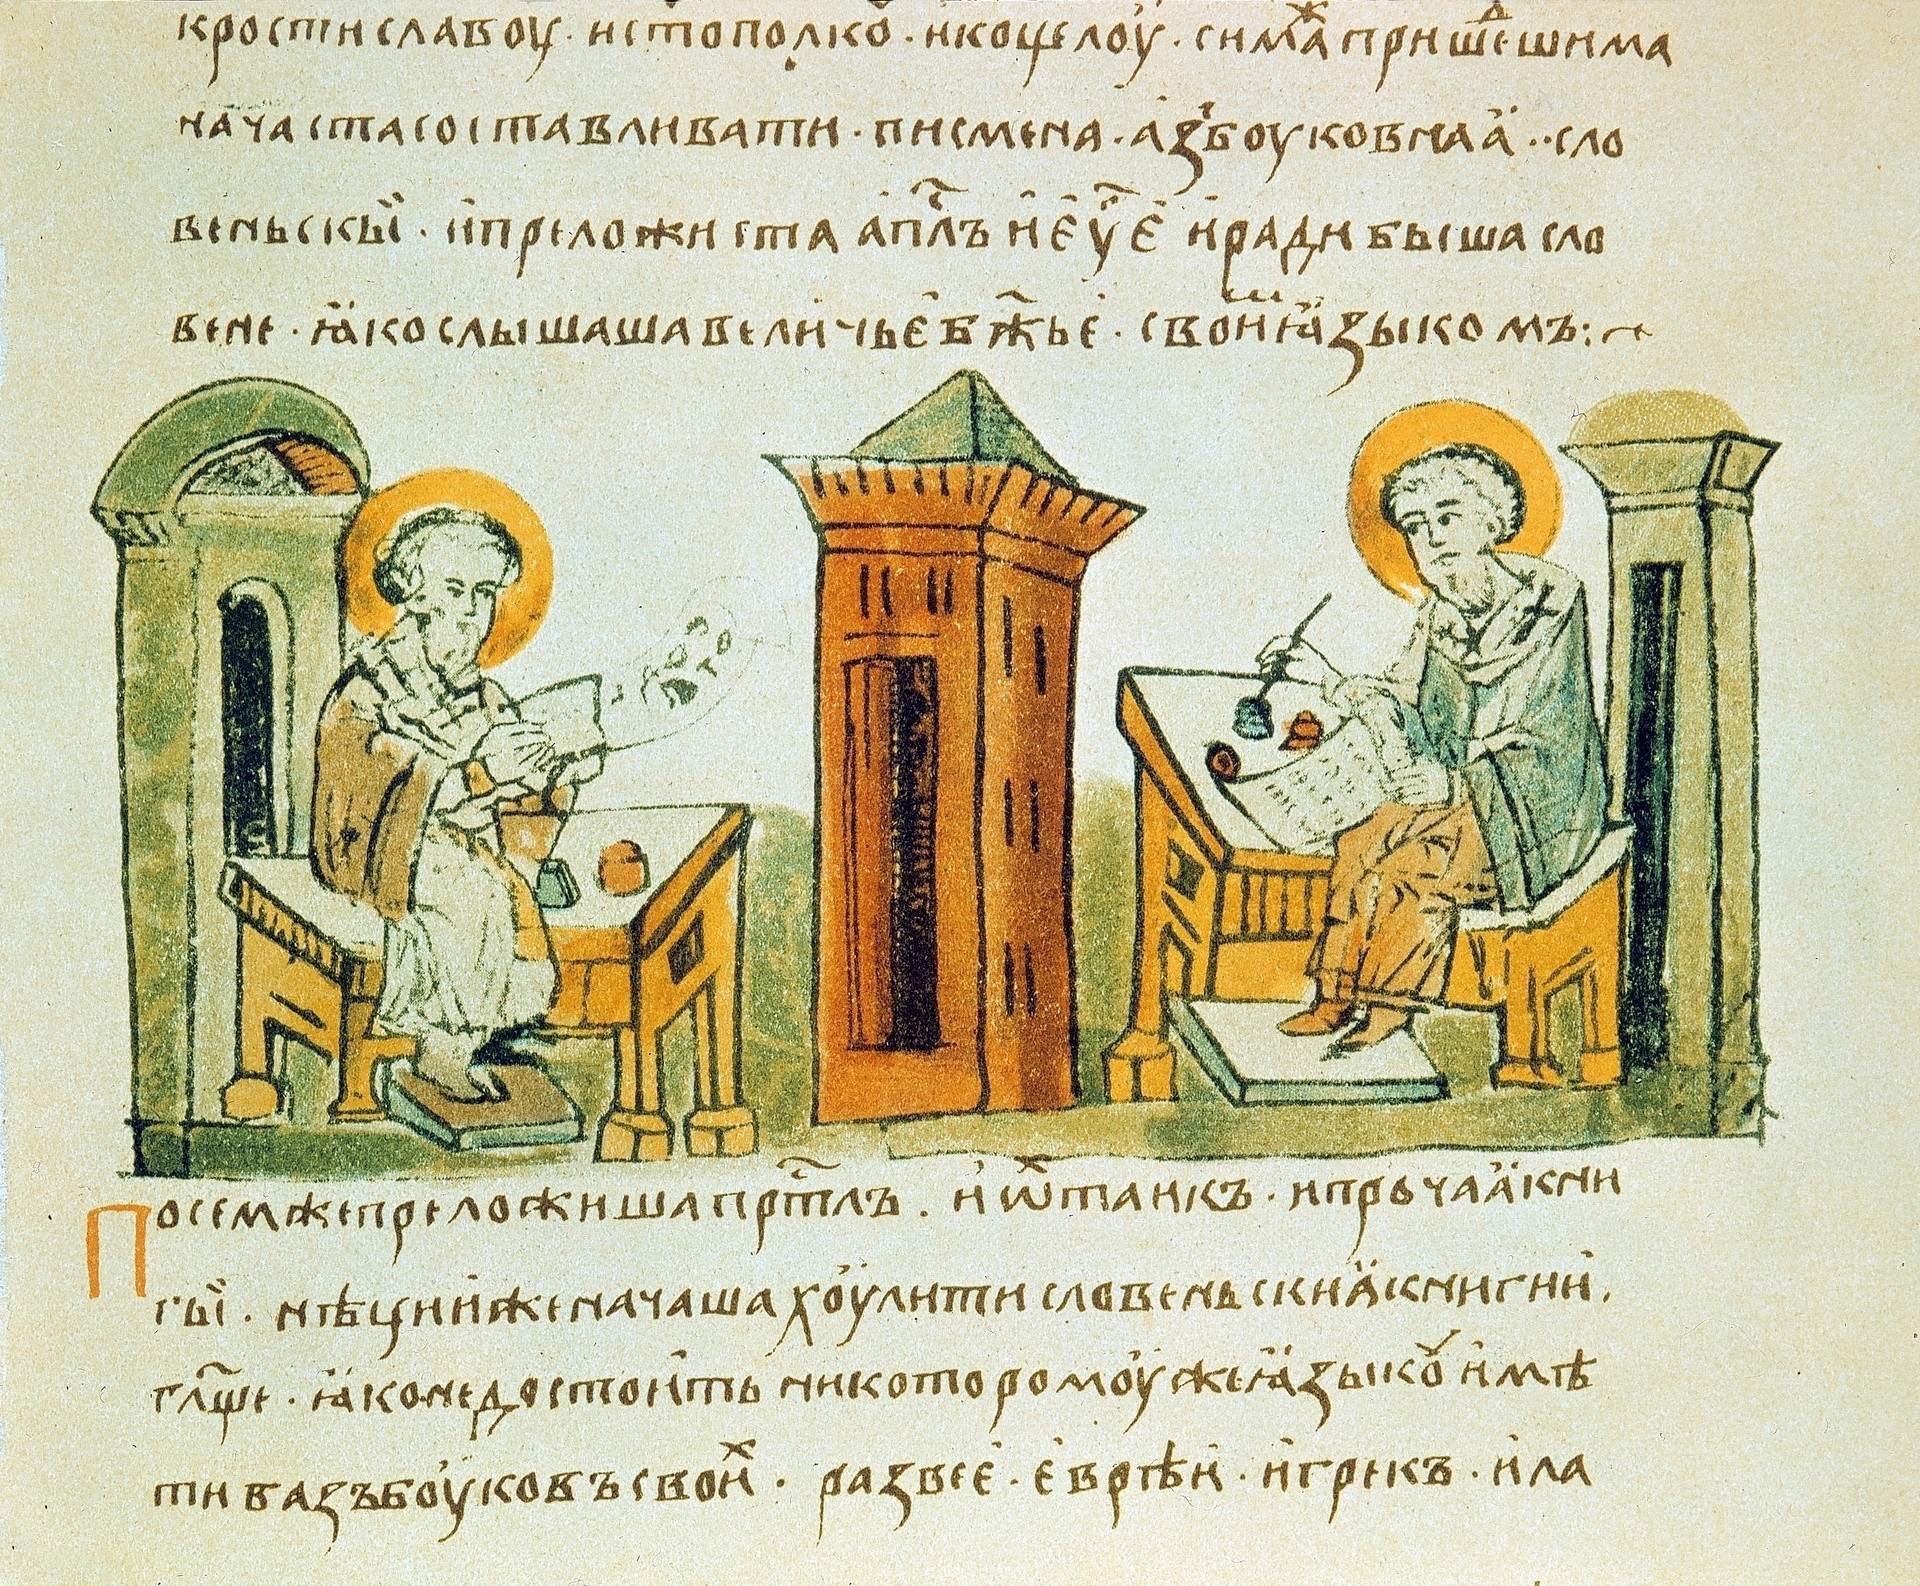 кростиславоу · истополко · икоцелоу · симаже пришедшима
начастасоставливати · писмена · азъбоуковнаꙗ · сло
веньскыи · ипреложиста ап҃лъ иеу҃е иради бышасло
вене · ꙗкослышашавеличьеб҃жье · своимь ꙗзыкомъ :~
Посемжепреложишапр҃тлъ · иѡ҃таикъ · ипрочаꙗкни
гы · нѣцииженачашахоулитисловеньскиꙗкнигии ·
гл҃ще · ꙗконедостоить никоторомоужеꙗзыкоу имѣ
тибазъбоуковъсвоих · развее · еврѣи · игрекъ · ила